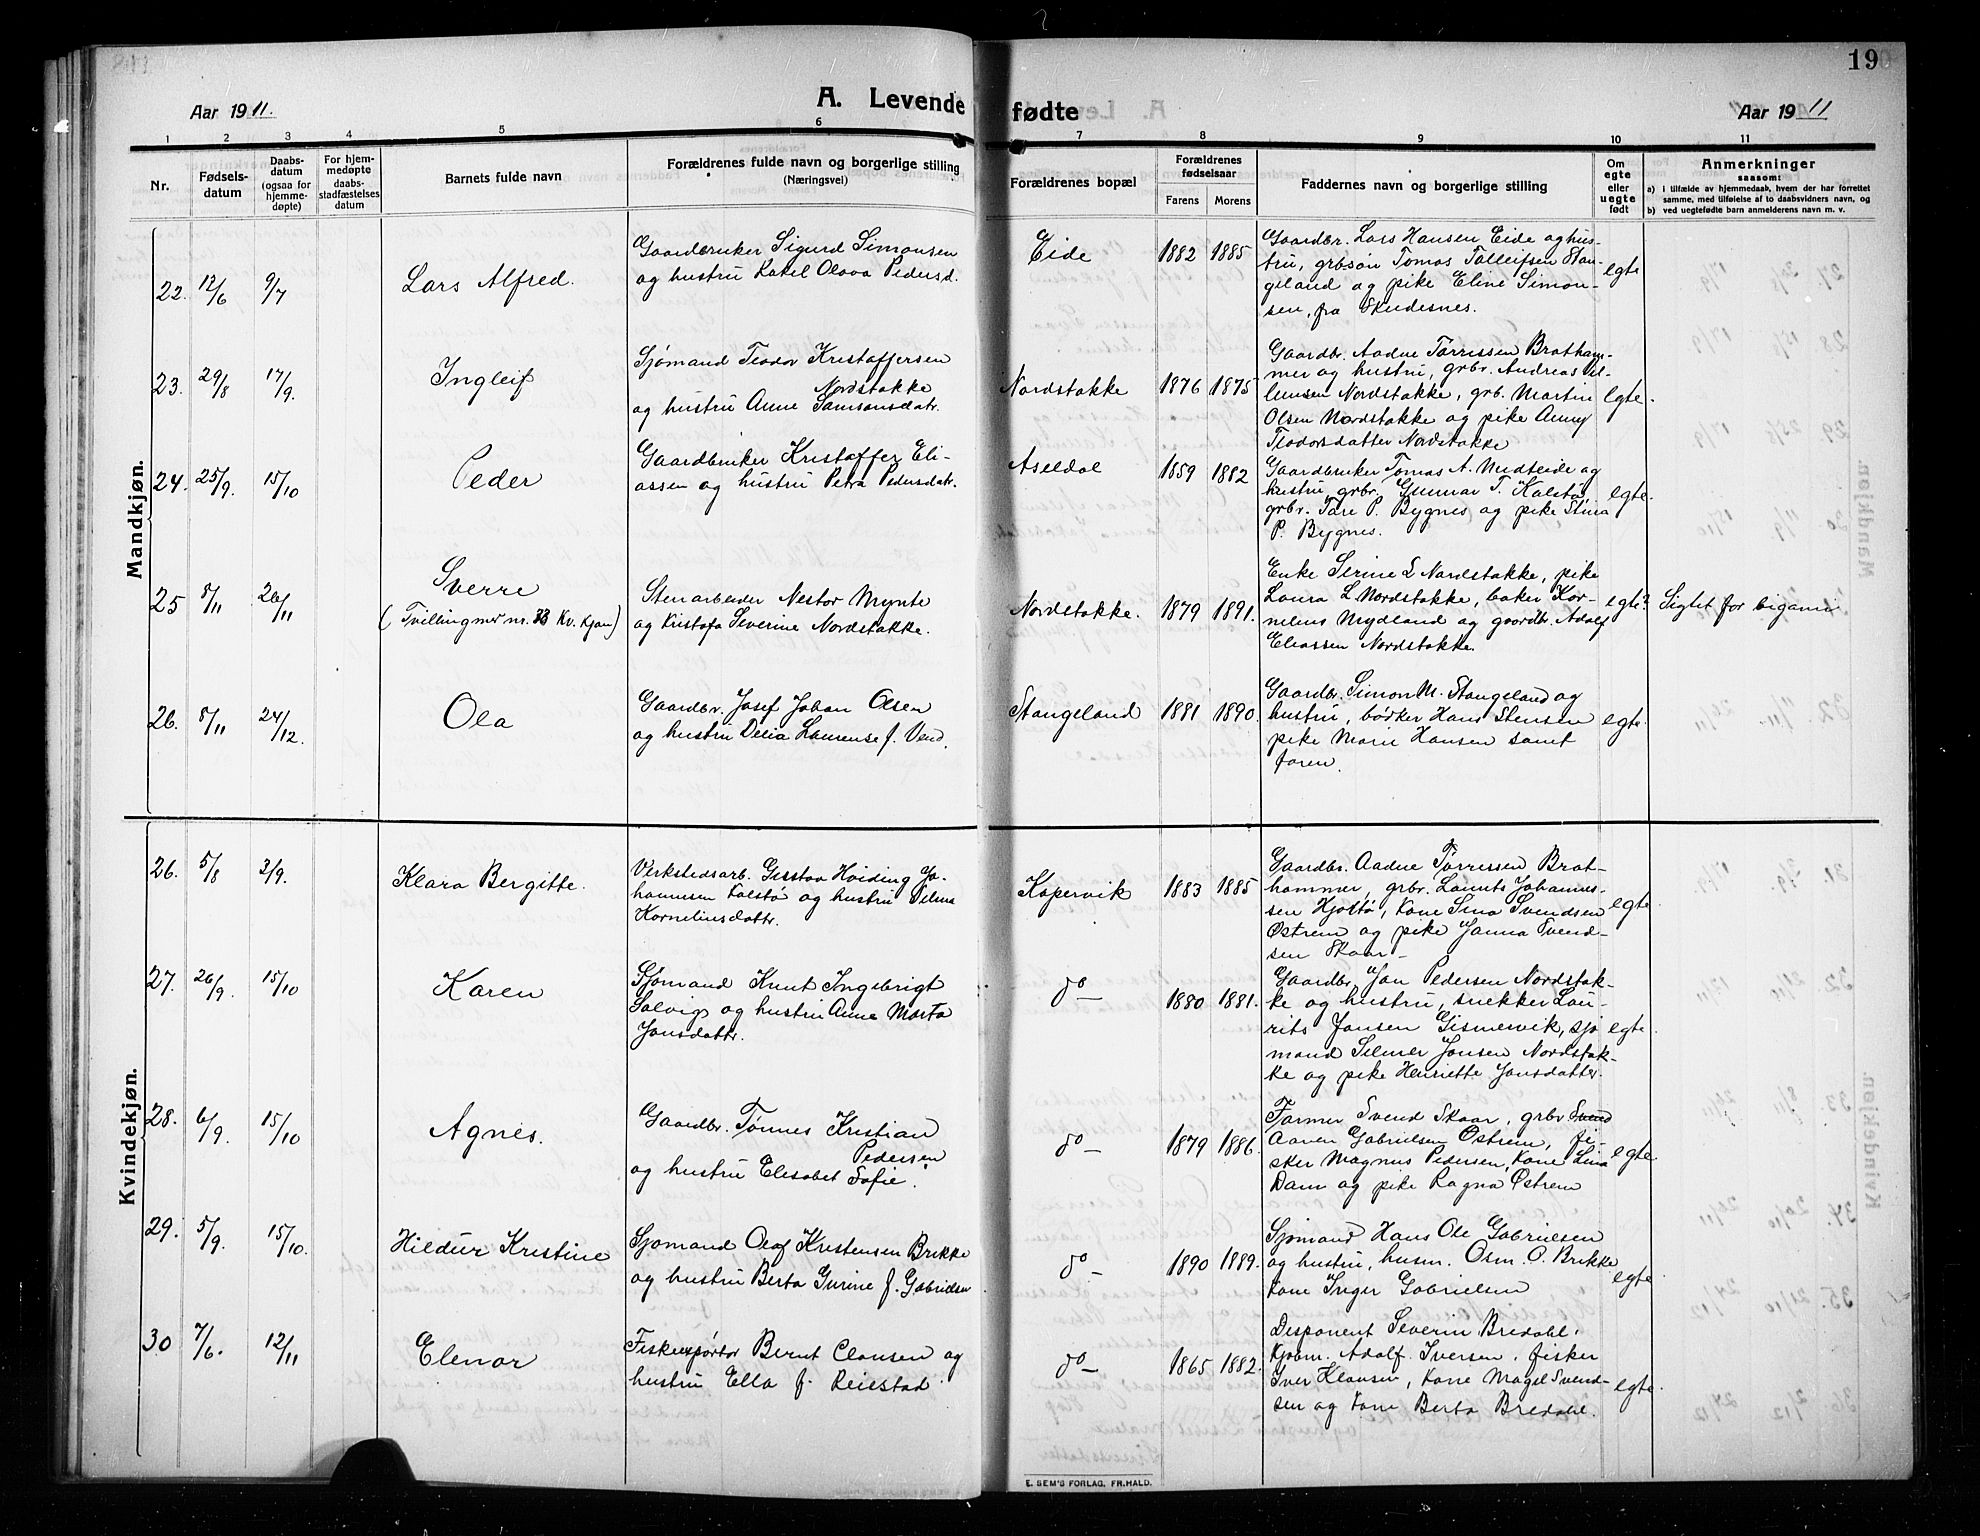 19
Aar 1911.
A. Levende fødte
Aar 1911
1 2 3 4 5 6 7 8 9 10 11
Nr.
Fødsels-
datum
Daabs-
datum
(ogsaa for
hjemme-
døpte)
For hjem-
medøpte
daabs-
stadfæstelses
datum
Barnets fulde navn
Forældrenes fulde navn og borgerlige stilling
(Næringsvei)
Forældrenes bopæl
Forældrenes
fødselsaar
Farens Morens
Faddernes navn og borgerlige stilling
Om
egte
eller
uegte
født
Anmerkninger
saasom:
a) i tilfælde av hjemmedaab, hvem der har forrettet
samme, med tilføielse af to daabsvidners navn, og
b) ved uegtefødte barn anmelderens navn m. v.
Mandkjøn.
22. 12/6 9/7 Lars Alfred.
Gaardbruker Sigurd Simonsen
og hustru Rakel Olava Pedersd.
Eide 1882 1885
Gaardbr. Lars Hansen Eide og hus-
tru, grbsøn Tomas Talleifsen Stan-
geland og pike Eline Simon-
sen, fra Skudesnes.
egte
23. 29/8 17/9. Ingleif
Sjømand Teodor Kristoffersen
Nordstokke
og hustru Anne Samsonsdatr.
Nordstokke 1876 1875
Gaardbr. Aadne Tørressen Brotham-
mer og hustru, grbr. Andreas
Nordstokke, grb. Martin
Olsen Nordstokke og pike Anny
Teodorsdatter Nordstokke
egte.
24. 25/9. 15/10 Peder
Gaardbruker Kristoffer Eli-
assen og hustru Petra Pedersdatr.
Aseldal 1859 1882
Gaardbruker Tomas A. Midteide og
hustru grbr. Gunnar T. Kalstø,
grbr. Tore P. Bygnes og pike Stina
P. Bygnes.
egte.
25 8/11 26/11 Sverre
(Tvilling m nr. 33 Kv. kjøn)
Stenarbeider Nestor Mynte
og Kristofa Severine Nordstokke.
Nordstokke. 1879 1891.
Enke Serine L Nordstokke, pike
Laura L Nordstokke, baker Kor-
nelius Mydland og gaardbr. Adolf
Eliassen Nordstokke.
egte? Sigtet for bigami
26. 8/11 24/12. Ola
Gaardbr. Josef Johan Olsen
og hustru Delia Laurense f. Vend.
Stangeland 1881 1890.
Gaardbr. Simon M. Stangeland og
hustru, bødker Hans Stensen
pike Marie Hansen samt
faren.
egte.
Kvindekjøn.
26. 5/8 3/9. Klara Bergitte.
Verkstedsarb. Gustav Høiding Jo-
hannesen Kalstø og hustru Selma
Korneliusdattr.
Kopervik 1883 1885
Gaardbr. Aadne Tørressen Brot-
hammer, grbr. Laurits Johannes-
sen Hjoltø, Kone Sina Svendsen
Østrem og pike Janna Svend-
sen Skaar
egte
27. 26/9. 15/10 Karen
Sjømand Knut Ingebrigt
Solvig og hustru Anne Marta
Jonsdattr.
do 1880 1881.
Gaardbr. Jon Pedersen Nordstok-
ke og hustru, snekker Lau-
rits Jansen Gismervik, sjø
mand Selmer Jonsen Nordstok-
ke og pike Henriette Jonsdatter.
egte
28. 6/9. 15/10 Agnes.
Gaardbr. Tønnes Kristian
Pedersen
og hustru Elisabet Sofie.
do 1879 1886.
Farmer Svend Skaar, grbr Svend
Aanen Gabrielsen Østrem, fi-
sker Magnus Pedersen, Kone Lina
Dam og pike Ragna Østrem
egte.
29. 5/9. 15/10. Hildur Kristine
Sjømand Olaf Kristensen Brekke
og hustru Berta Gurine f. Gabrielsen
do 1890 1889.
Sjømand Hans Ole Gabrielsen
og hustru, husm. Osm. O. Brekke
Kone Inger Gabrielsen
egte
30 7/6. 12/11 Elenor
Fiskeexportør Bernt Clausen og
hustru Ella f. Reiestad
do 1865 1882.
Disponent Severin Bredahl,
Kjøbm. Adolf Iversen, fisker
Iver Klausen, Kone Magel Svend-
sen og Kone Berta Bredahl.
egte.
E. SEM'S FORLAG, FR.HALD.